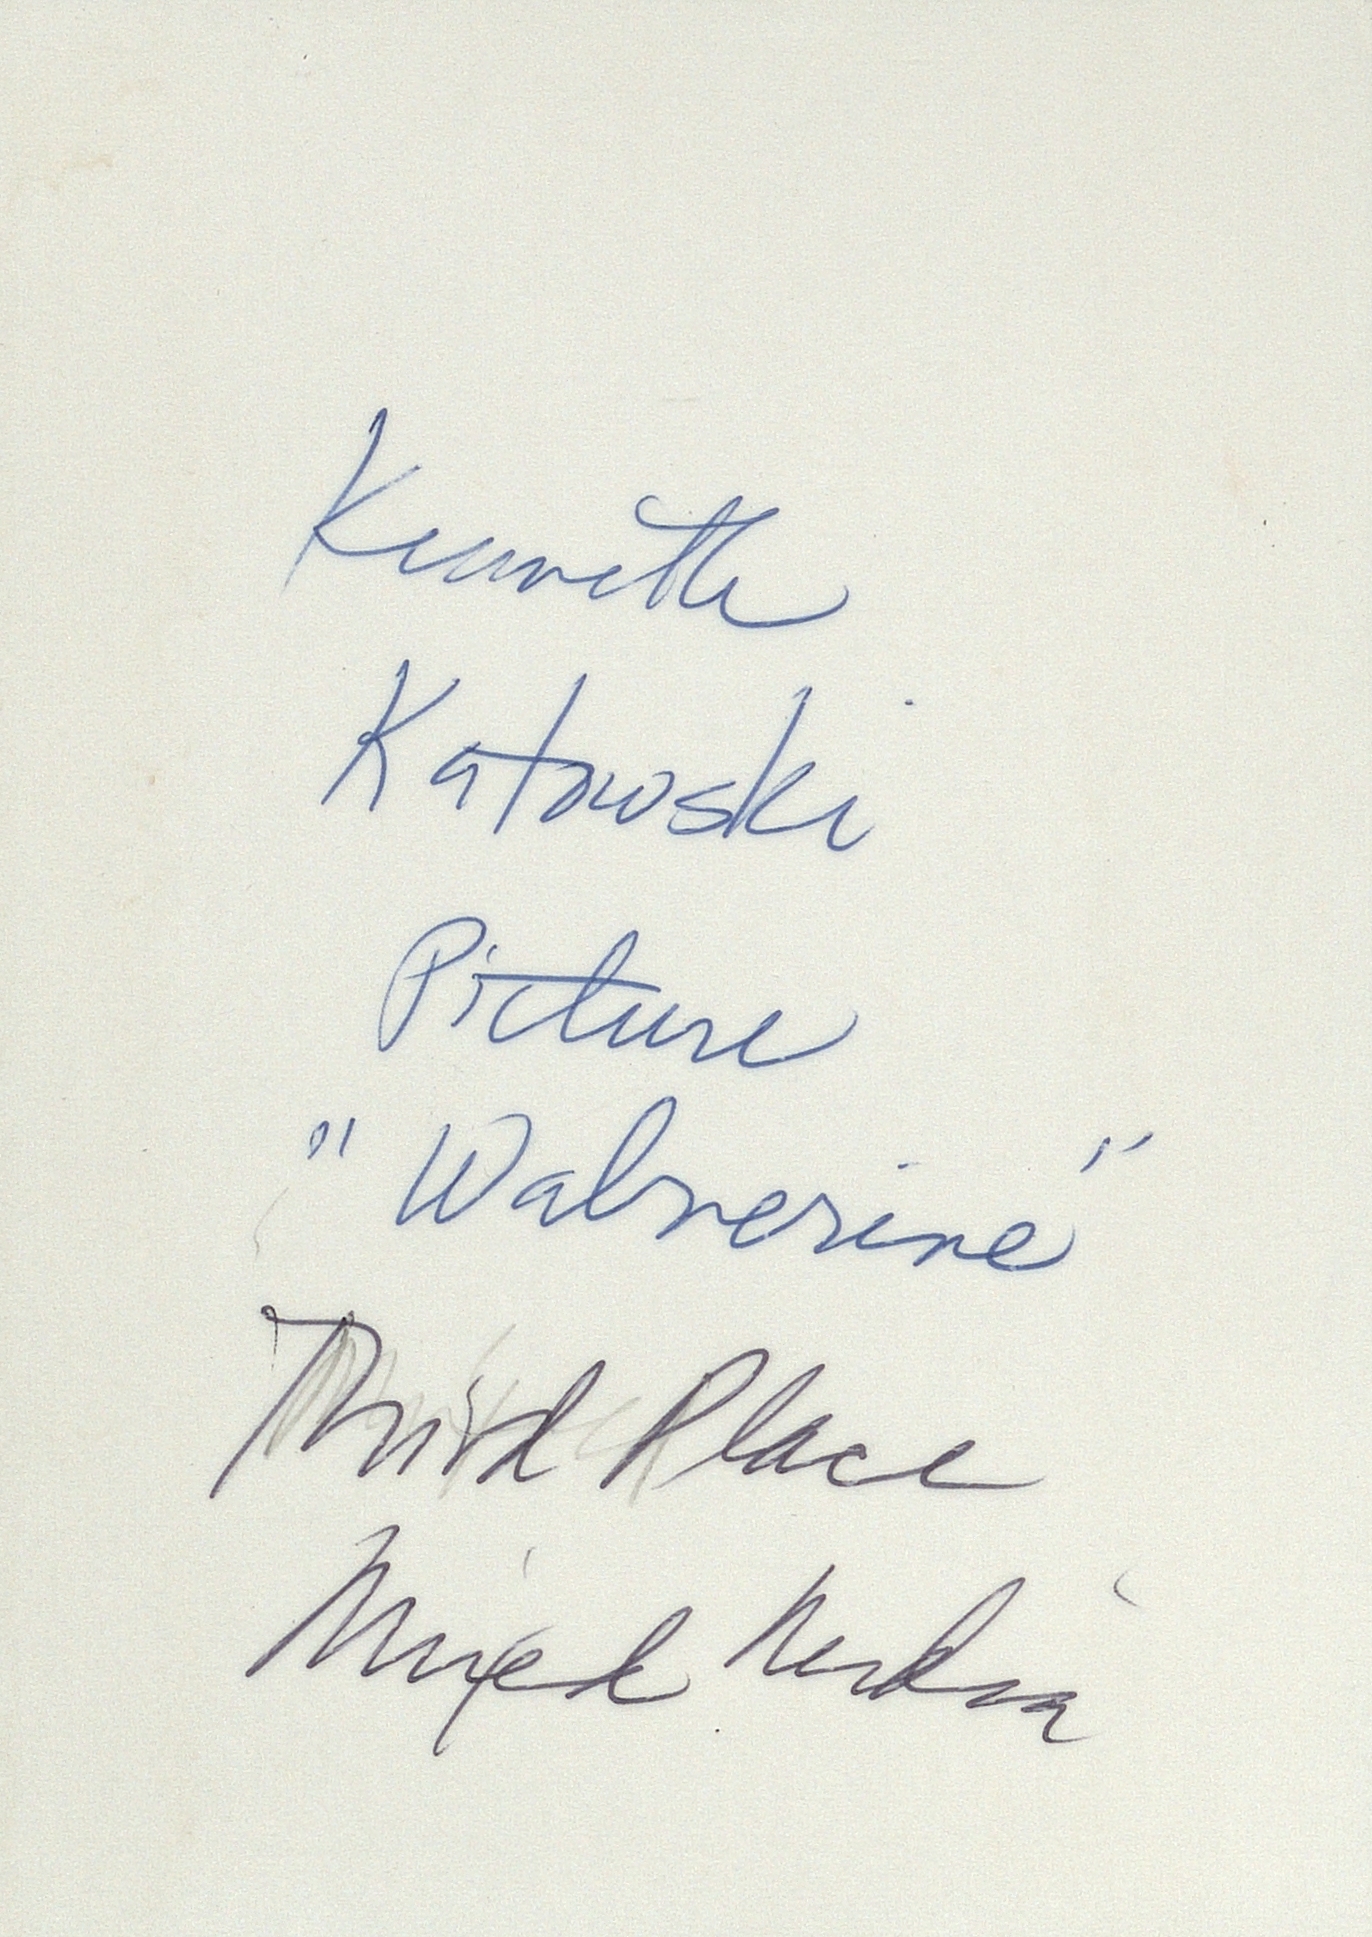 Kenneth
Katowski
Picture
"Walverine"
Third Place
Mixed Media